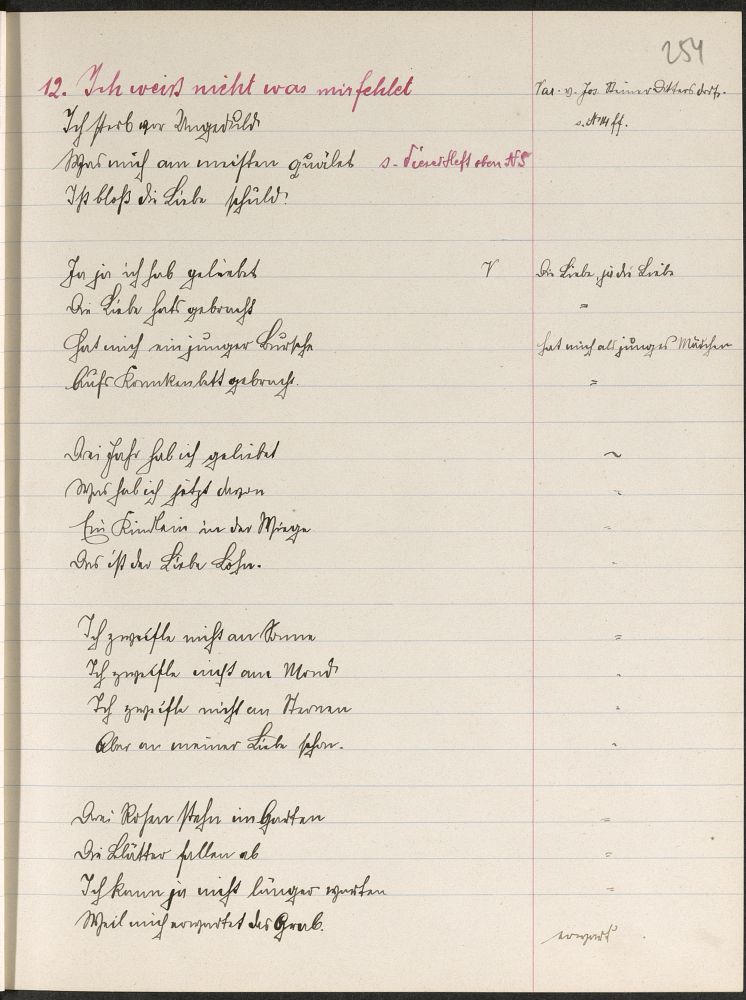 254
12. Ich weiß nicht was mir fehlet
Ich sterb vor Ungeduld
Was mich am meisten quälet s. dieses Heft oben N5
Ist bloß die Liebe schuld.
Ja ja ich hab geliebet
Die Liebe hats gebracht
Hat mich ein junger Bursche
Aufs Krankenbett gebracht.
Drei Jahr hab ich geliebet
Was hab ich jetzt davon
Ein Kindlein in der Wiege
Das ist der Liebe Lohn.
Ich zweifle nicht an Sonne
Ich zweifle nicht am Mond
Ich zweifle nicht an Sternen
Aber an meiner Liebe schon.
Drei Rosen stehn im Garten
Die Blätter fallen ab
Ich kann ja nicht länger warten
Weil mich erwartet das Grab.
Var. v. Jos. Steiner Dittersdorf.
s. ff.
V Die Liebe, ja die Liebe
"
hat mich als junges Mädchen
"
~
"
"
"
"
"
"
"
"
"
"
erwart